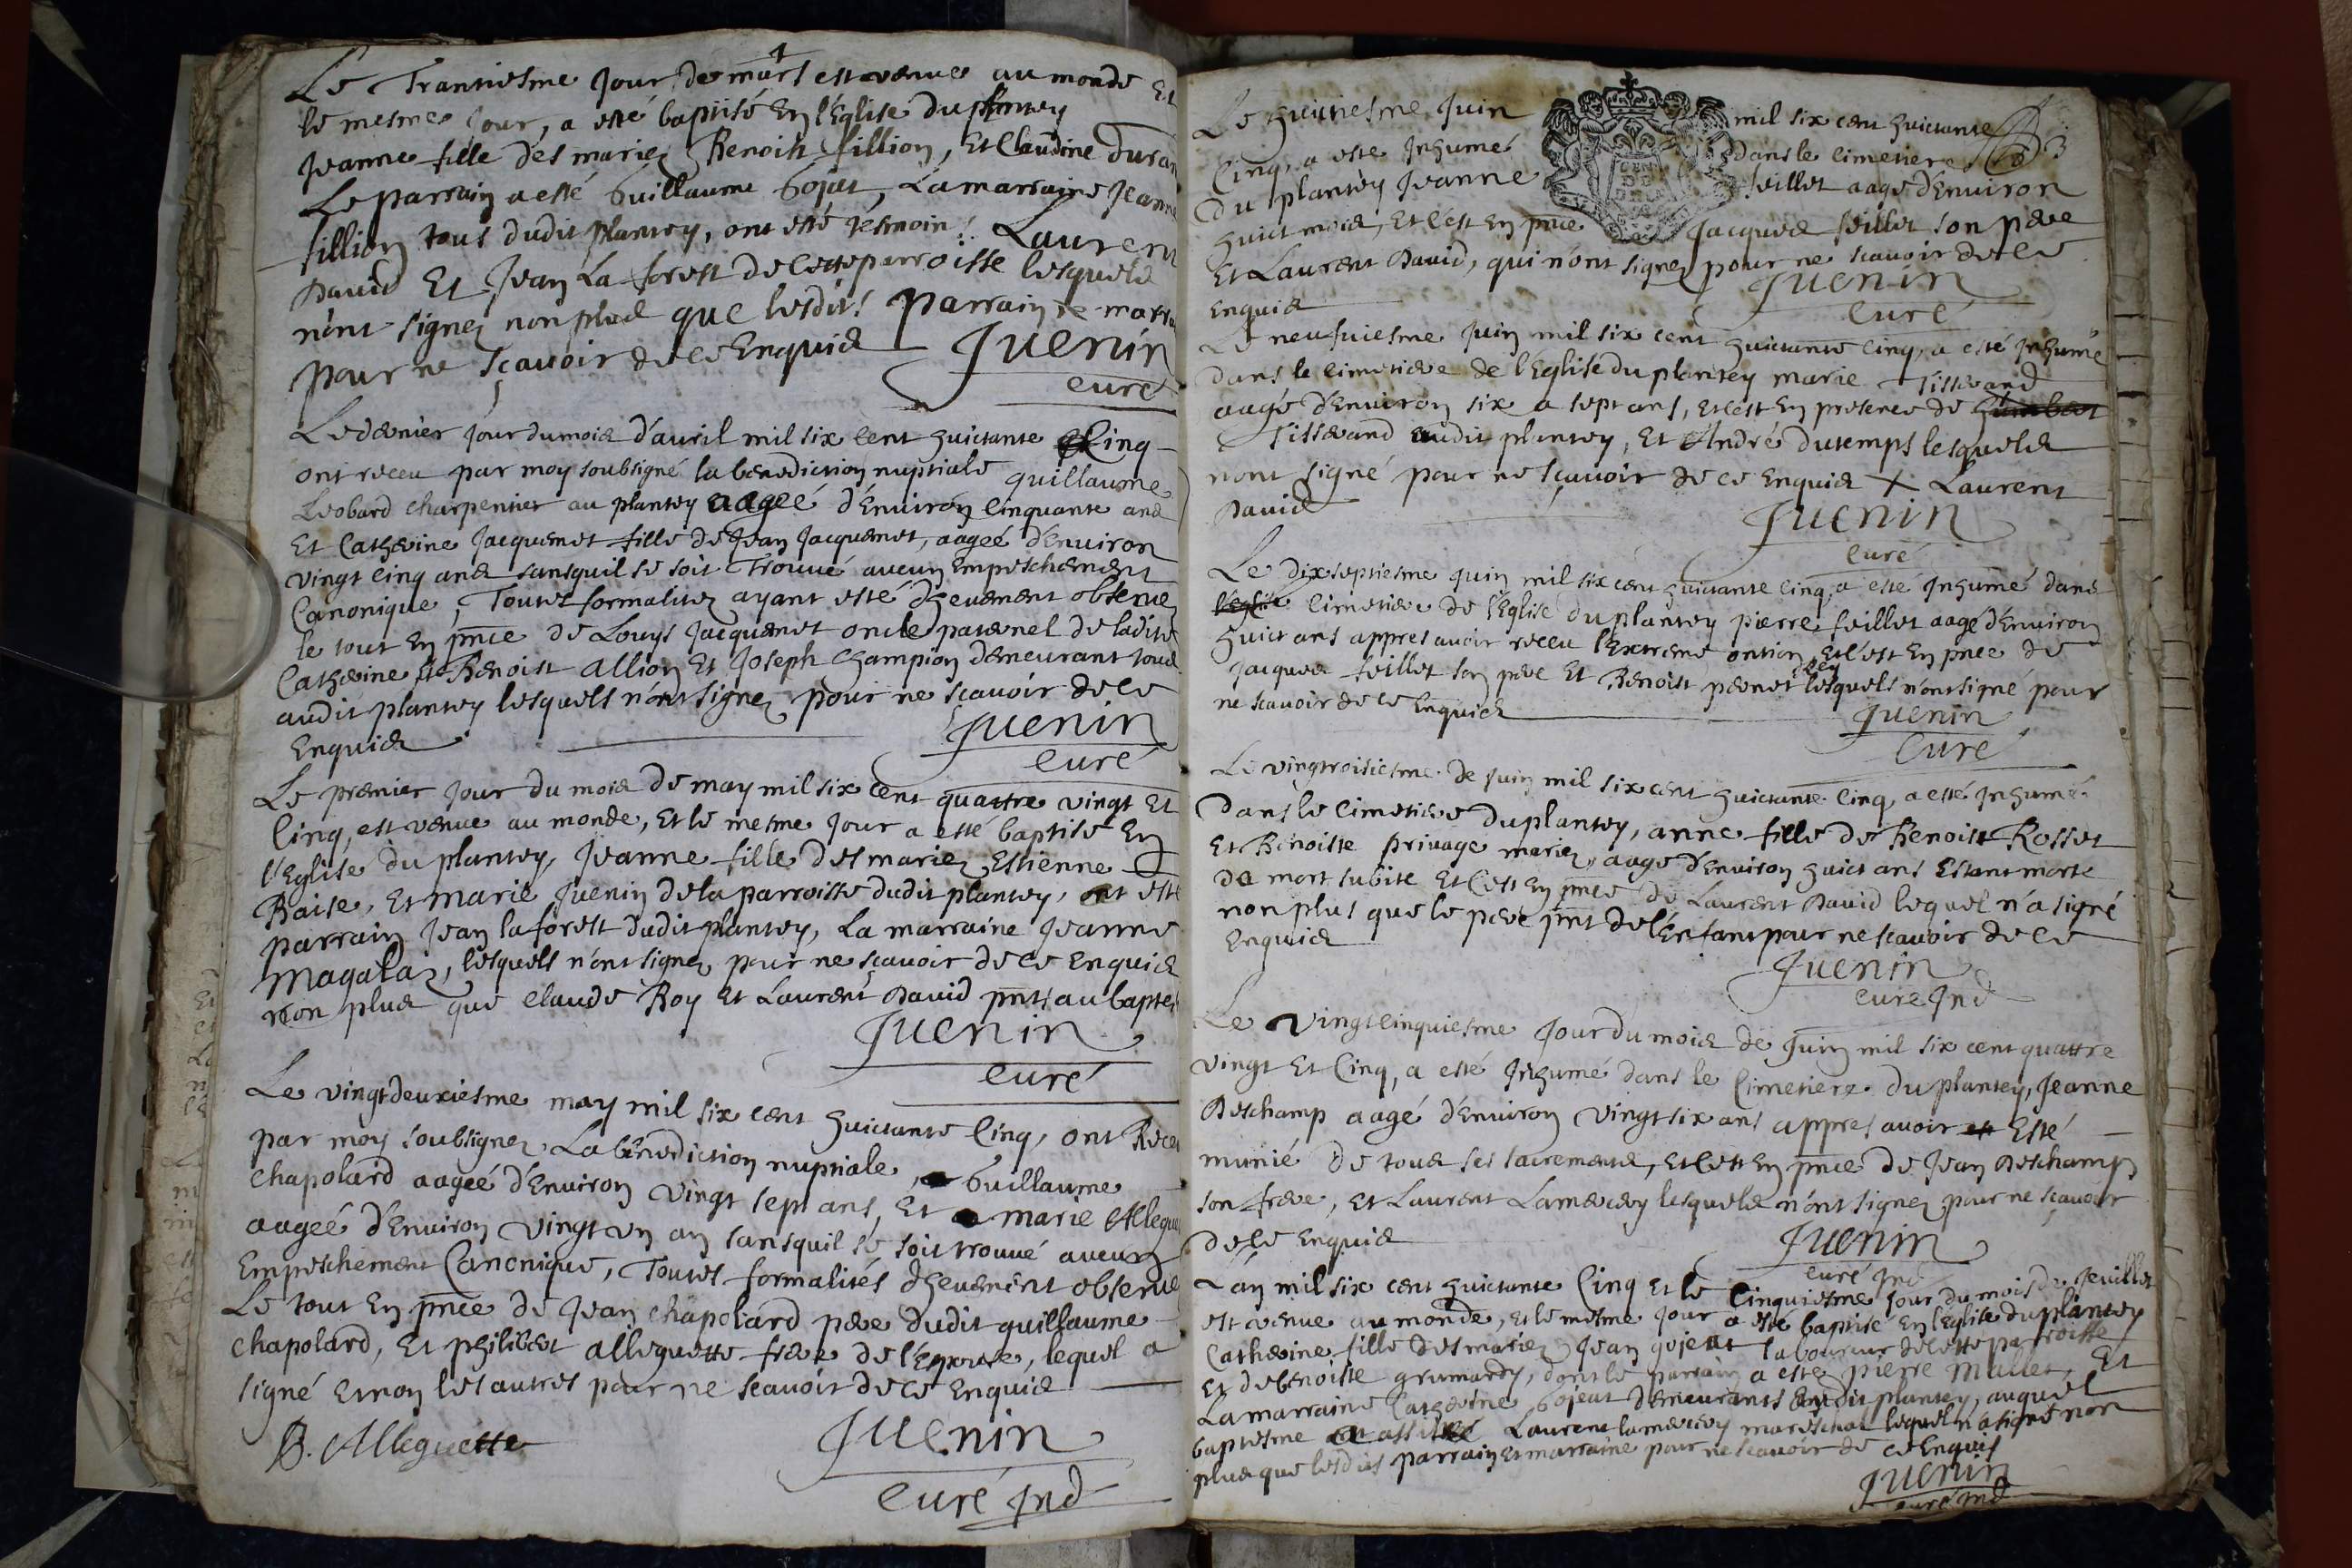 Le Trantiesme Jour de mars est venue au monde Et
le mesme Jour, a esté baptisé En l'Eglise du plantey
Jeanne fille des mariez Benoist fillion, Et Claudine Duran
Le parrain a esté Guillaume Gojat, La marraine Jeanne
fillion tous dudit plantey, ont esté tesmoins Laurent
David Et Jean La forest de cette parroisse lesquels
n'ont signez non plus que lesdits parrain et marra
pour ne sçavoir de ce Enquis Juenin
curé
Le dernier Jour du mois d'auril mil six cent huictante Cinq
ont receu par moy soubsigné la benediction nuptiale guillaume
Leobard charpentier au plantey aageé d'Enuiron cinquante ans
Et Catherine Jacquemet fille de Jean Jacquemet, aageé d'Enuiron
vingt cinq ans sans quil se soit Trouué aucun Empeschement
Canonique, Toutes formalitez ayant esté dheuement obserué
le tout En pnce de Louys Jacquemet oncle paternel de ladite
Catherine, de Benoist allion Et Joseph Champion demeurant tous
audit plantey lesquels n'ont signez pour ne scauoir de ce
Enquis Juenin
curé
Le premier Jour du mois de may mil six cent quattre vingt Et
Cinq, est venue au monde, Et le mesme Jour a esté baptisé En
l'Eglise du plantey, Jeanne fille des mariez Estienne
Baise, Et marie Juenin de la parroisse dudit plantey, ont esté
parrain Jean la forest dudit plantey, La marraine Jeanne
Magalaz, lesquels n'ont signez pour ne sçavoir de ce Enquis
non plus que claude Roy Et Laurent David pnts au baptes
Juenin
curé
Le vingtdeuxiesme may mil six cent huictante Cinq, ont Receu
par moy soubsignez La benediction nuptiale, Guillaume
chapolard aageé d'Enuiron vingt sept ans, Et marie Allegue
aageé d'Enuiron vingt vn an sans quil se soit trouué aucun
Empeschement Canonique, Toutes formalités dheuement obserué
Le tout En pnce de Jean chapolard père dudit guillaume
chapolard, Et philibert alleguette frere de l'Epouse, lequel a
signé Et non les autres pour ne scauoir de ce Enquis
B. Alleguette Juenin
curé Ind
Le huictiesme Juin mil six cent huictante
Cinq, a esté Inhumé dans le cimetiere
du plantey Jeanne feillet aagé d'Enuiron
huict mois, Et c'est En pnce de Jacques feillet son père
Et Laurent David, qui n'ont signez pour ne scauoir de ce
Enquis Juenin
curé
Le neufuiesme Juin mil six cent huictante cinq, a esté Inhumé
dans le cimetiere de l'Eglise du plantey marie Tisserand
aagé d'Enuiron six a sept ans, Et c'est En presence de humbert
Tisserand audit plantey, Et André dutemps lesquels
n'ont signé pour ne sçavoir de ce Enquis X Laurent
David Juenin
curé
Le dix septiesme Juin mil six cent huictante cinq, a esté Inhumé dans
l'eglise cimetiere de l'Eglise du plantey pierre feillet aagé d'Enuiron
huict ans appres avoir receu l'Extreme ontion, Et c'est En pnce de
Jacques feillet son père Et Benoist pernet lesquels n'ont signé pour
ne scauoir de ce Enquis Juenin
curé
Le vingtroisiesme de Juin mil six cent huictante Cinq, a esté Inhumé
dans le cimetiere du plantey, anne fille de Benoist Rosset
Et Benoiste privage mariez, aagé d'Enuiron huict ans Estant morte
de mort subite Et c'est En pnce de Laurent David lequel n'a signé
non plus que le père pnt de l'Enfant pour ne scauoir de ce
Enquis Juenin
curé Ind
Le vingtcinquiesme Jour du mois de Juin mil six cent quattre
vingt Et Cinq, a esté Inhumé dans le Cimetiere du plantey, Jeanne
Deschamp aagé d'Enuiron vingt six ans appres avoir Esté
munié de tous ses sacrements, Et c'est En pnce de Jean Deschamp
son frere, Et Laurent Lamercey lesquels n'ont signez pour ne sçavoir
de ce Enquis Juenin
curé Ind
L'an mil six cent huictante Cinq Et le Cinquiesme Jour du mois de Jeuillet
est venue au monde, Et le mesme Jour a esté baptisé En l'Eglise du plantey
Catherine fille des mariez Jean gojeat laboureur de cette parroisse
Et de benoiste grumandy, dont le parrain a esté pierre Mallet, Et
La marraine Catherine Gojeat demeurants audit plantey, auquel
baptesme a assisté Laurent lamercey mareschal lequel n'a signé non
plus que lesdits parrain Et marraine pour ne scavoir de ce Enquis
Juenin
curé Ind